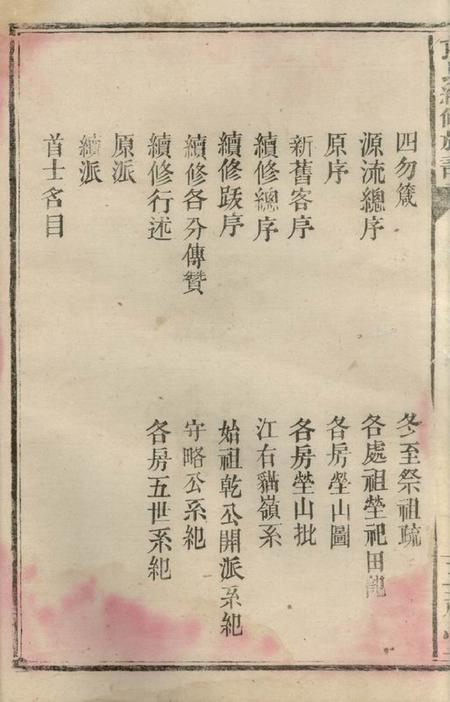 四勿箴
源流總序
原序
新舊客序
續修總序
續修跋序
續修各分傳贊
續修行述
原派
續派
首士名目
冬至祭祖疏
各處祖塋祀田記
各房塋山圖
各房塋山批
江右貓嶺系
始祖乾公開派系紀
守略公系紀
各房五世系紀